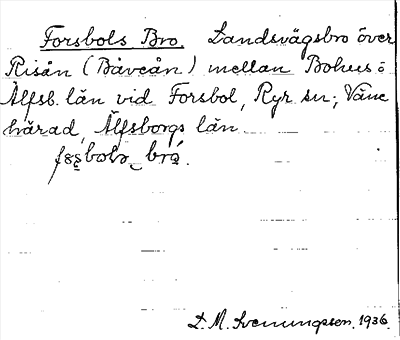 Forsbols Bro. Landsvägsbro över
Risån (Båveån) mellan Bohus- o
Älfsb. län vid Forsbol, Ryr sn; Väne
härad, Älfsborgs län.
bro.
D. M. Svenungsson. 1936.